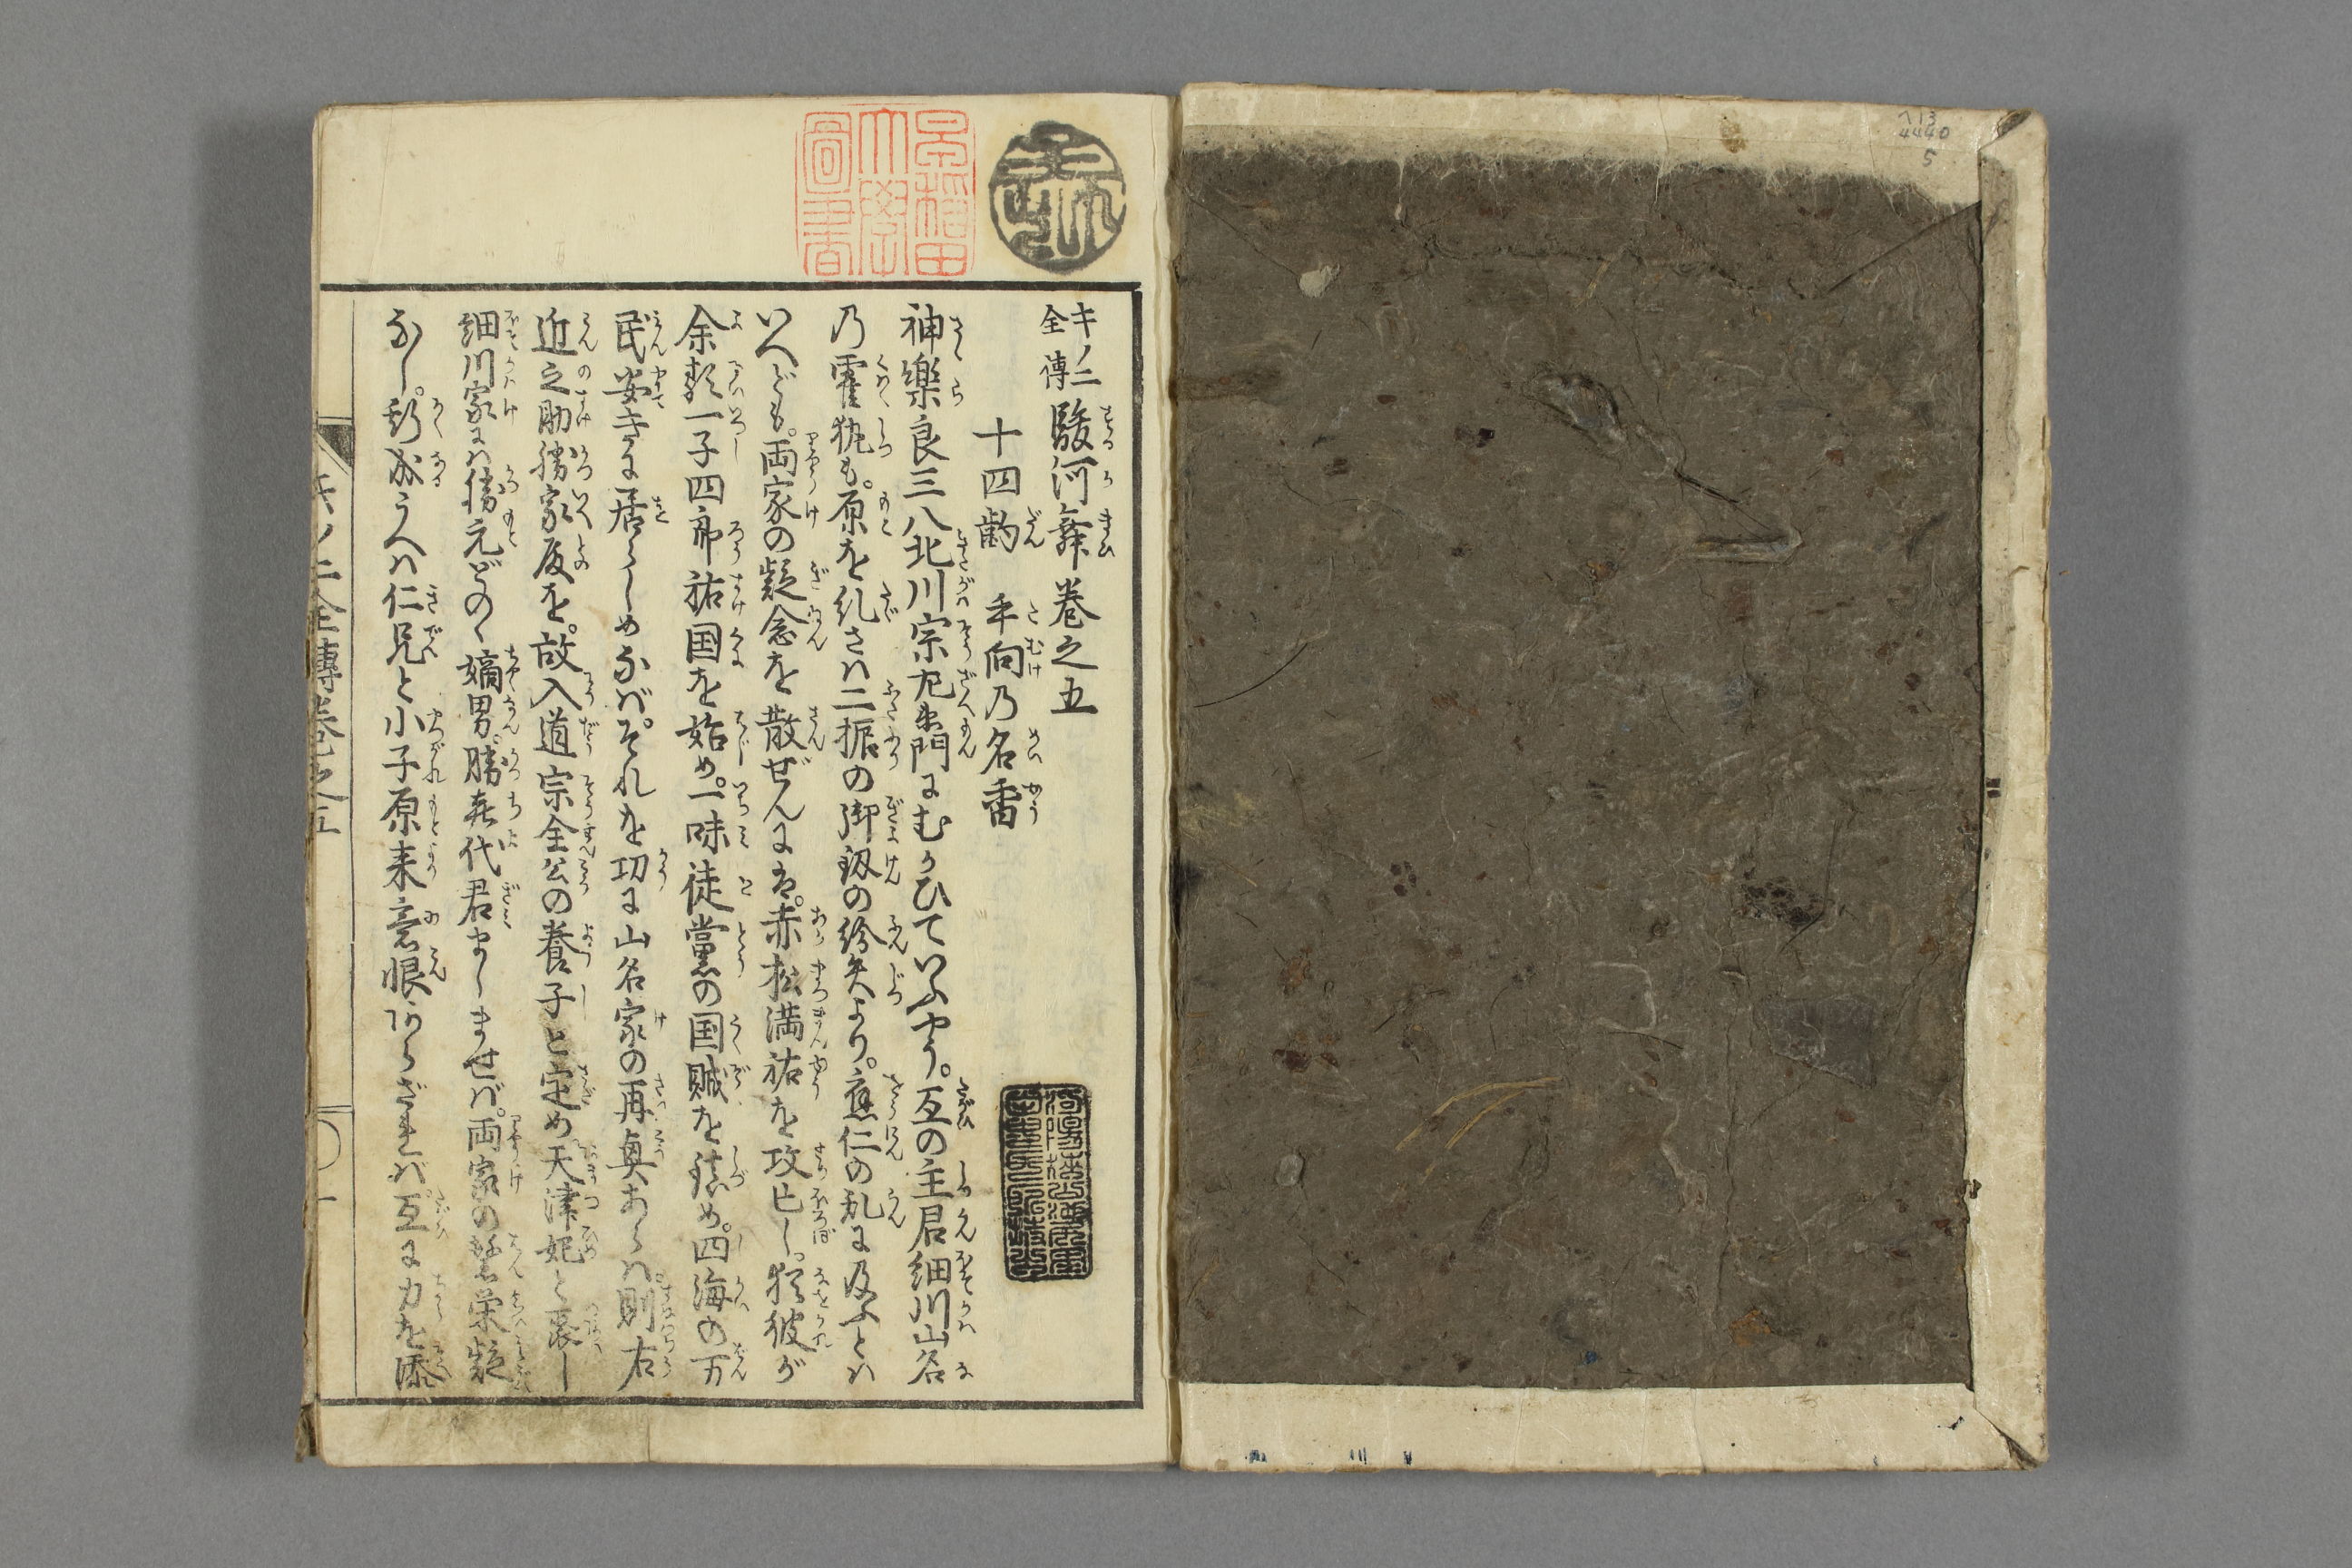 ヘ13
4440
5
早稲田
大學
圖書
キノ二
全傳
駿河舞巻之五
十四齣 手向乃名香
神樂良三八北川宗左衛門にむかひていふやう。互の主君細川山名
乃霍執も。原を糺さハ二振の御釼の紛失より。應仁の乱に及ふとハ
いへども。両家の疑念を散ぜんには。赤松満祐を攻亡し。猶彼が
余類一子四郎祐国を始め。一味徒黨の国賊を鎮め。四海の万
民安きに居らしめなば。それを功に山名家の再興あらハ。則右
近之助勝家殿を。故入道宗全公の養子と定め。天津妃と裏し
細川家にハ勝元どのゝ嫡男。勝喜代君ましませば。両家の繁栄疑
なし。斯成うへハ仁兄と小子原来意恨あらざれば。互に力を添
キノ二全傳巻之五